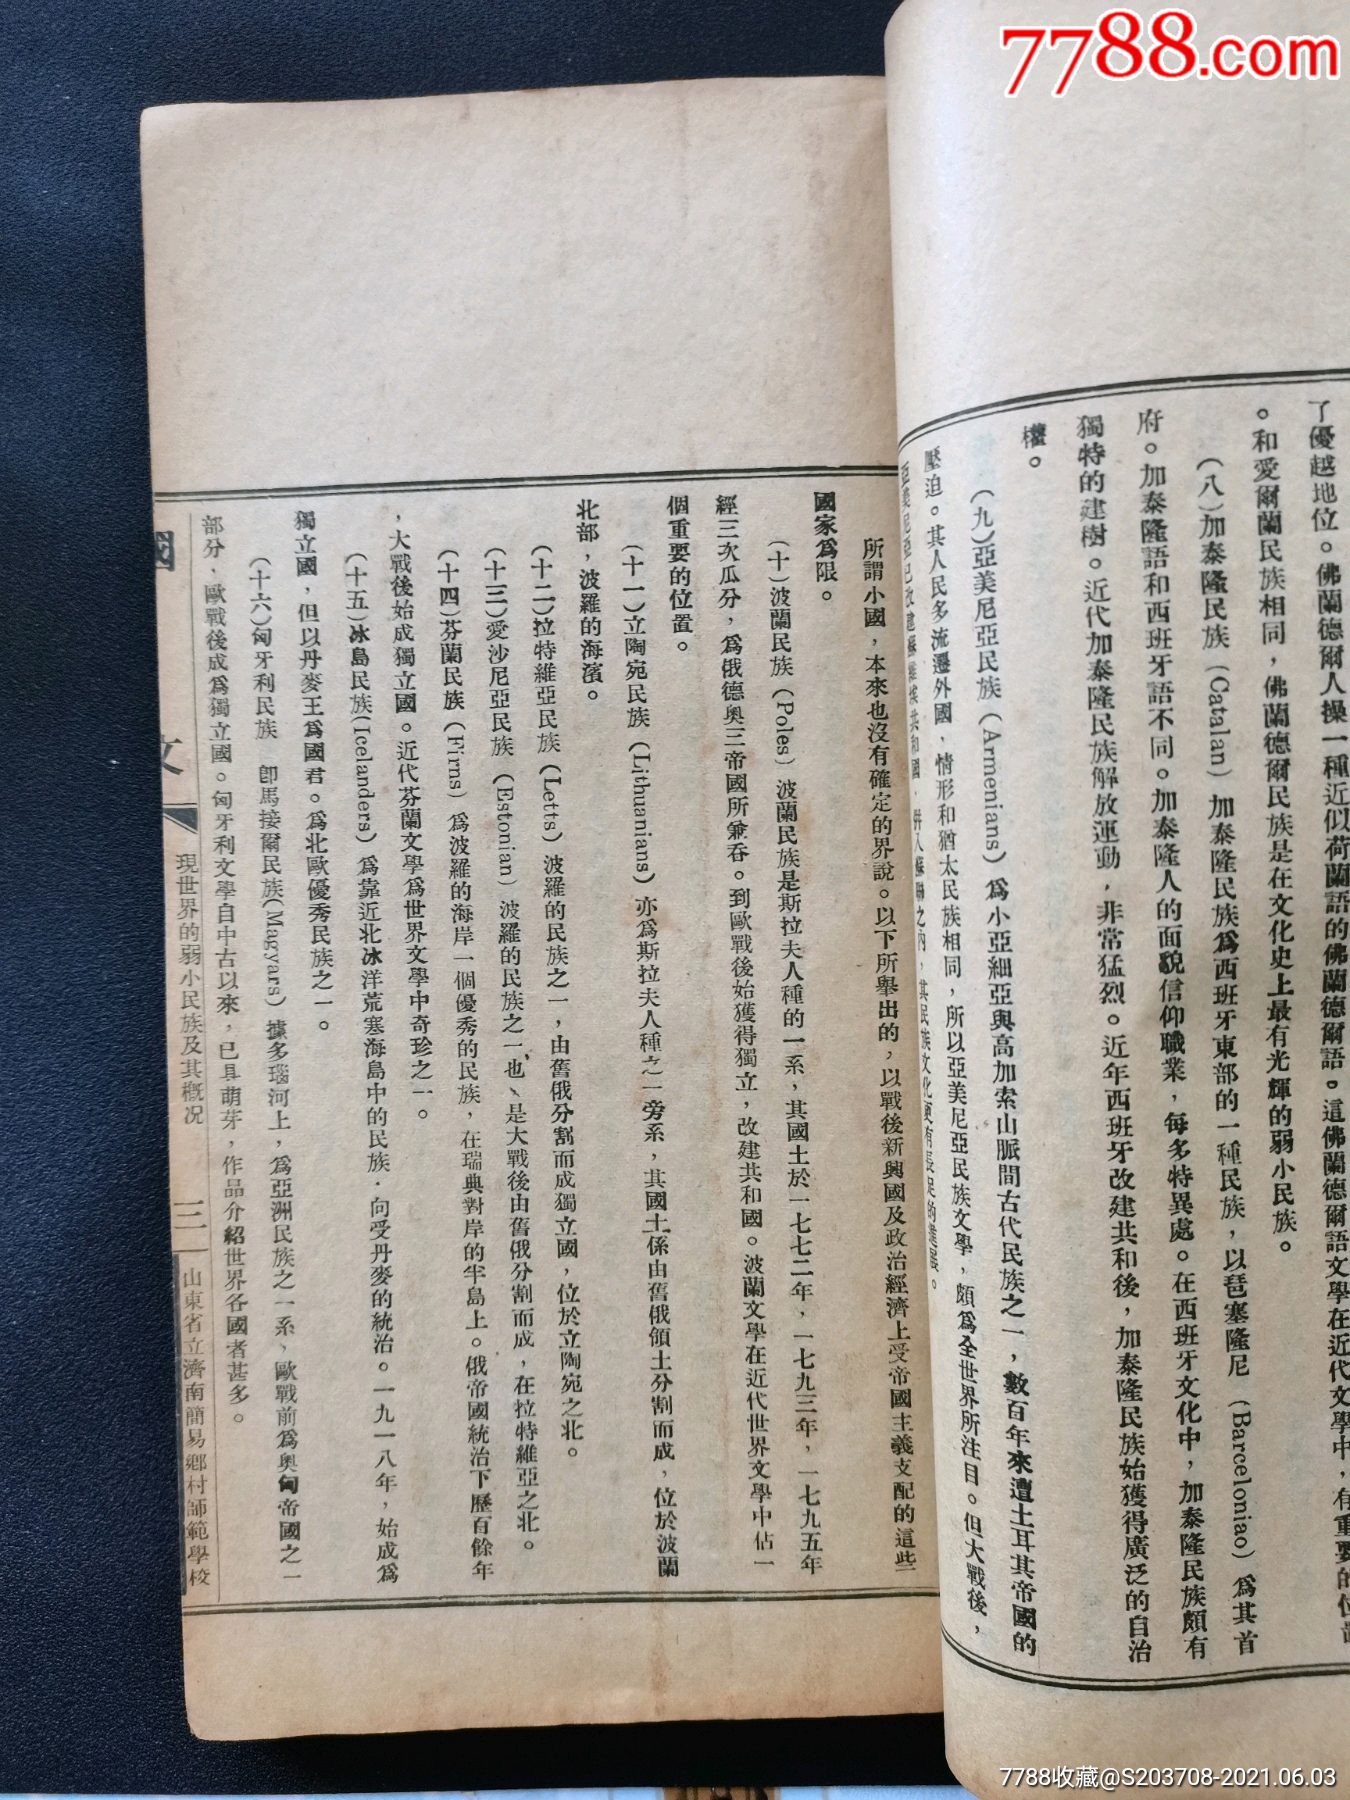 7788.com
了優越地位。佛蘭德爾人操一種近似荷蘭語的佛蘭德爾語。這佛蘭德爾語文學在近代文學中，有重要的位置
。和愛爾蘭民族相同，佛蘭德爾民族是在文化史上最有光輝的弱小民族。
（八）加泰隆民族（Catalan）加泰隆民族爲西班牙東部的一種民族，以琶塞隆尼（Barceloniao）爲其首
府。加泰隆語和西班牙語不同。加泰隆人的面貌信仰職業，每多特異處。在西班牙文化中，加泰隆民族頗有
獨特的建樹。近代加泰隆民族解放運動，非常猛烈。近年西班牙改建共和後，加泰隆民族始獲得廣泛的自治
權。
（九）亞美尼亞民族（Armenians）爲小亞細亞與高加索山脈間古代民族之一，數百年來遭土耳其帝國的
壓迫。其人民多流遷外國，情形和猶太民族相同，所以亞美尼亞民族文學，頗爲全世界所注目。但大戰後，
亞美尼亞已改建蘇維埃共和國，併入蘇聯之內，其民族文化更有長足的進展。
所謂小國，本來也沒有確定的界說。以下所舉出的，以戰後新興國及政治經濟上受帝國主義支配的這些
國家爲限。
（十）波蘭民族（Poles）波蘭民族是斯拉夫人種的一系，其國土於一七七二年，一七九三年，一七九五年
經三次瓜分，爲俄德奥三帝國所兼吞。到歐戰後始獲得獨立，改建共和國。波蘭文學在近代世界文學中佔一
個重要的位置。
（十一）立陶宛民族（Lithuanians）亦爲斯拉夫人種之一旁系，其國土係由舊俄領土分割而成，位於波蘭
北部，波羅的海濱。
（十二）拉特維亞民族（Letts）波羅的民族之一，由舊俄分割而成獨立國，位於立陶宛之北。
（十三）愛沙尼亞民族（Estonian）波羅的民族之一也、是大戰後由舊俄分割而成，在拉特維亞之北。
（十四）芬蘭民族（Firns）爲波羅的海岸一個優秀的民族，在瑞典對岸的半島上。俄帝國統治下歷百餘年
，大戰後始成獨立國。近代芬蘭文學爲世界文學中奇珍之一。
（十五）冰島民族（Icelanders）爲靠近北冰洋荒寒海島中的民族．向受丹麥的統治。一九一八年，始成爲
獨立國，但以丹麥王爲國君。爲北歐優秀民族之一。
（十六）匈牙利民族　卽馬接爾民族（Magyars）據多瑙河上，爲亞洲民族之一系，歐戰前爲奥匈帝國之一
部分，歐戰後成爲獨立國。匈牙利文學自中古以來，已具萌芽，作品介紹世界各國者甚多。
國文
現世界的弱小民族及其概况
三
山東省立濟南簡易鄉村師範學校
7788收藏@S203708-2021.06.03